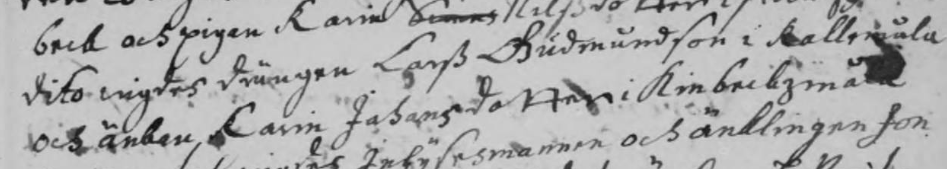 beck och pigan Karin Nilsdotter
dito wigdes drängen Larß Gudmundson i Kallemåla
och änkan, Karin Johansdotter i Kinbeckzmåla
Inhysesmannen och änklingen Jon